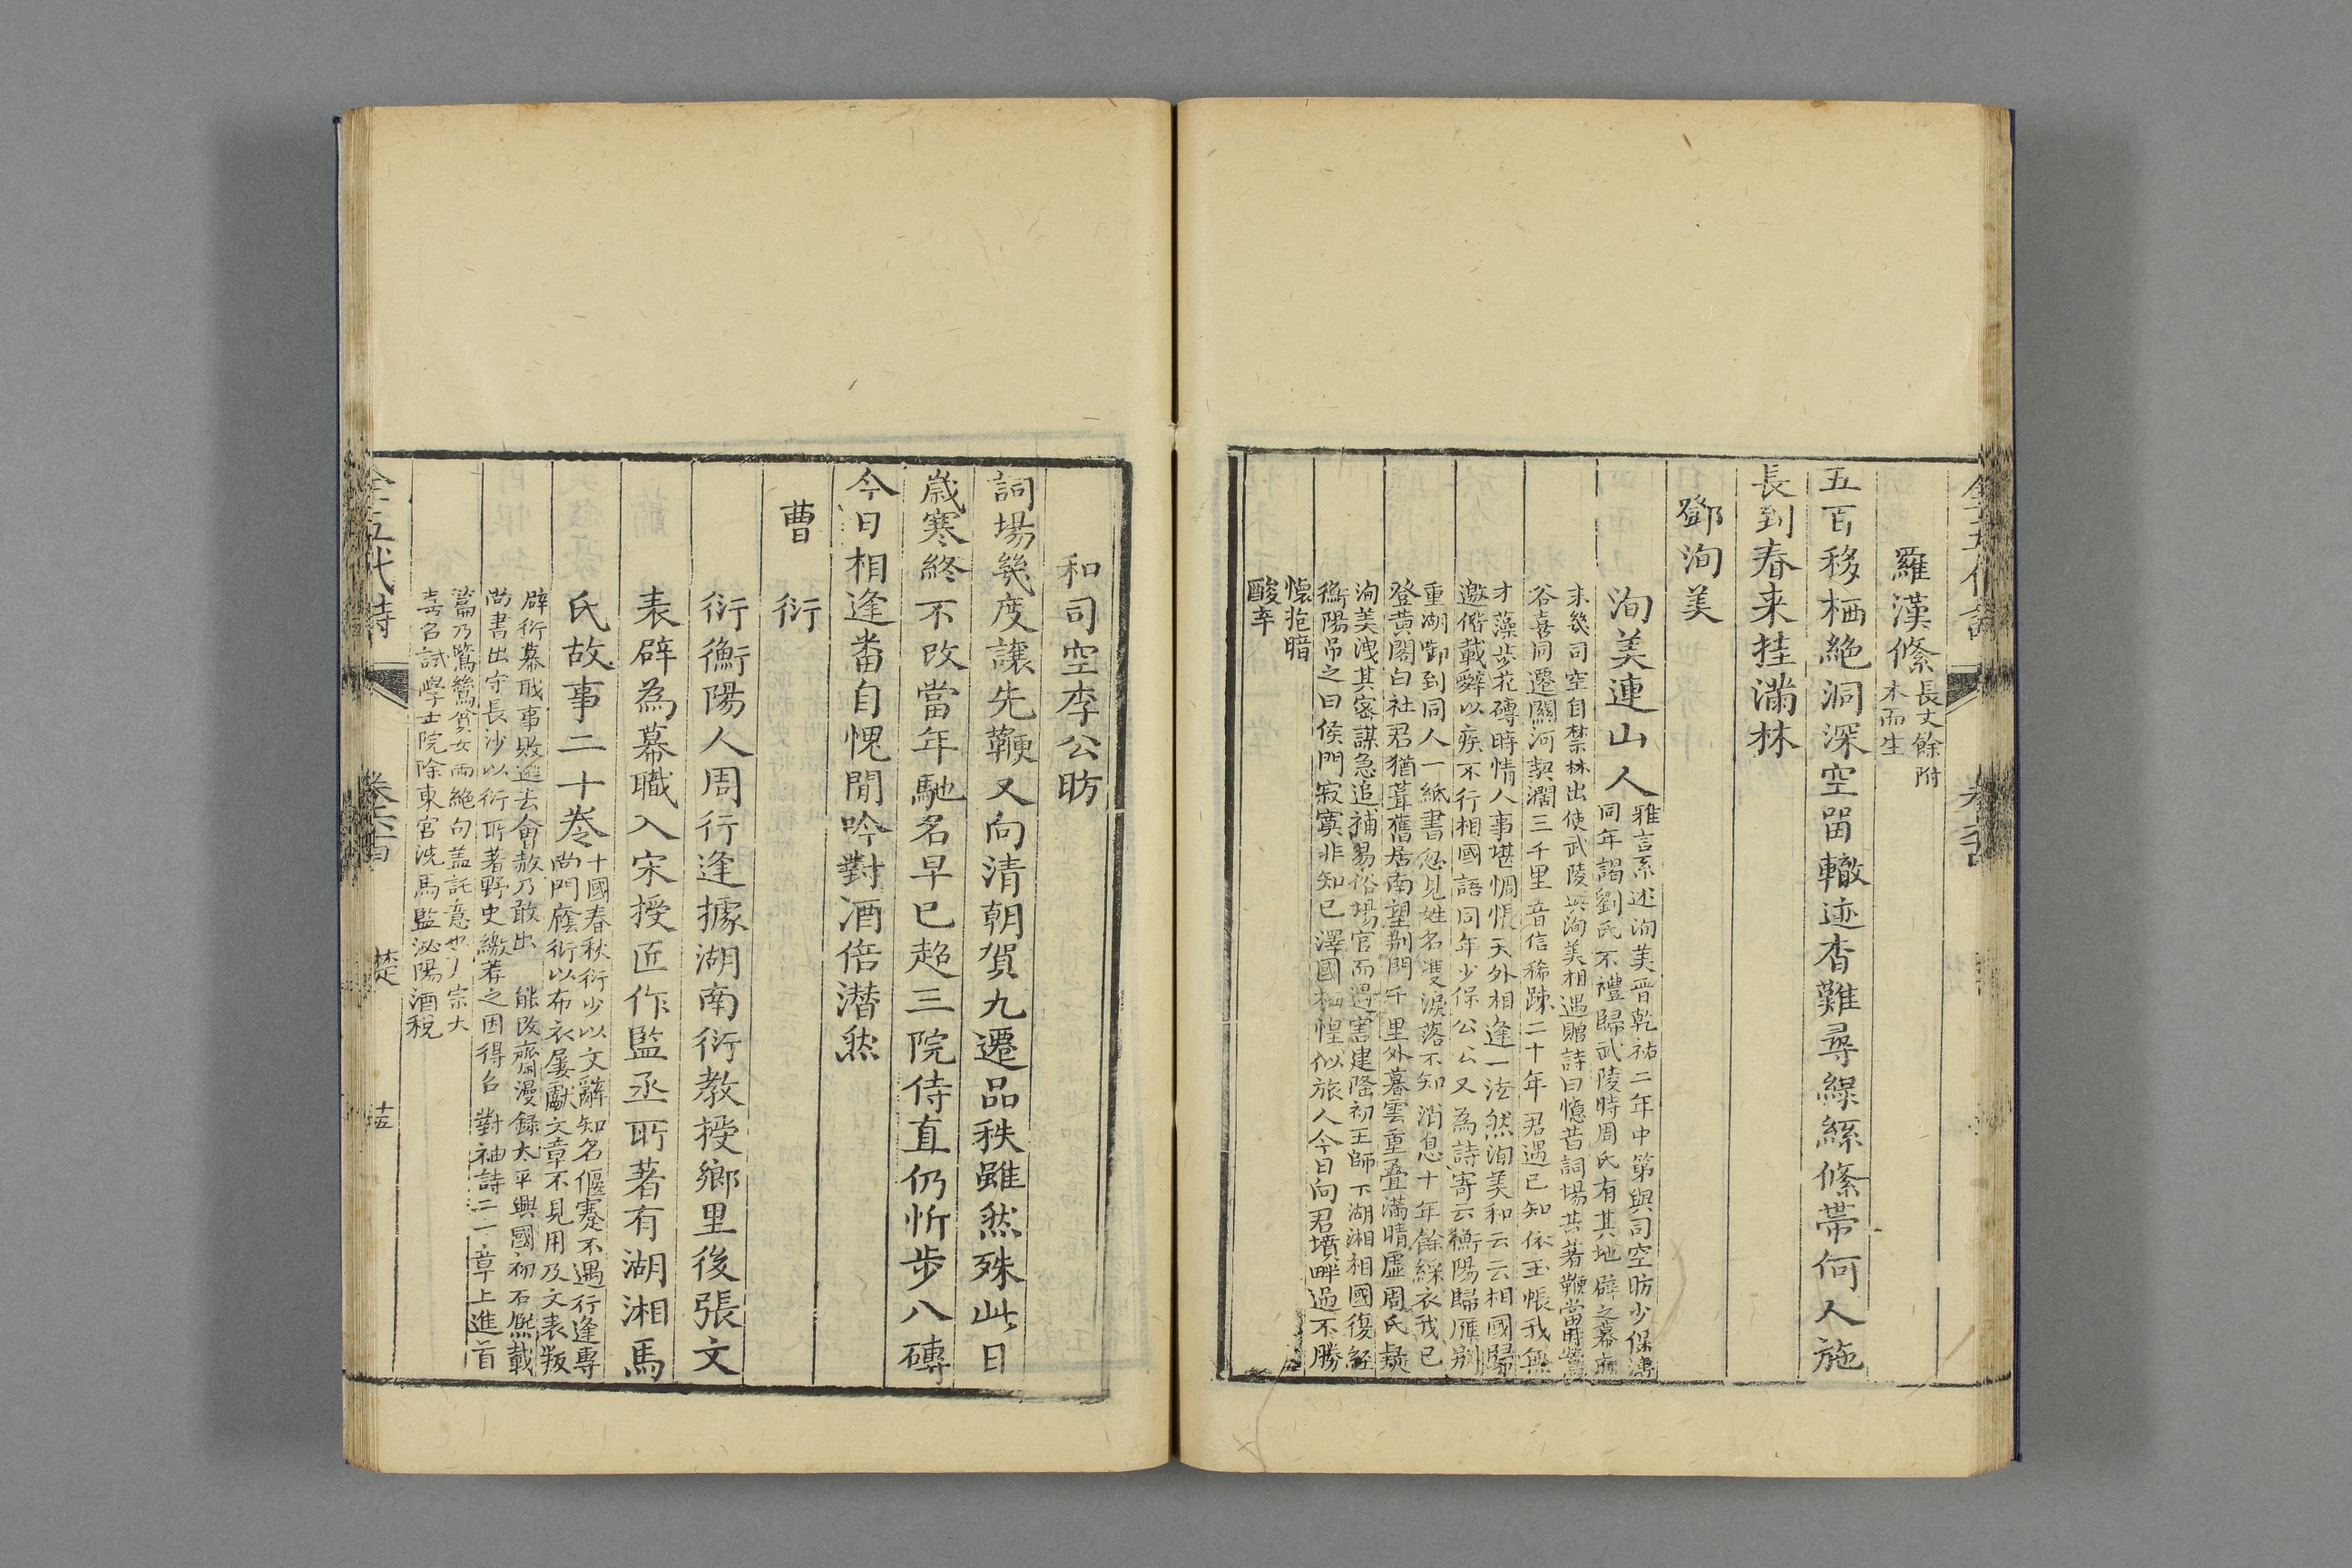 羅漢絛長丈餘附
木而生
五百移栖絶洞深空留轍迹杳難尋緑絲絛帶何人施
長到春来挂滿林
鄧洵美
洵美連山人雅言系述洵美晋乾祐二年中第與司空昉少保溥
同年謁劉氏不禮歸武陵時周氏有其地辟之幕府
未幾司空自禁林出使武陵與洵美相遇贈詩曰憶昔詞場共著鞭當時鶯
谷喜同遷關河契濶三千里音信稀踈二十年君遇已知依玉帳我無
才藻步花磚時情人事堪惆悵天外相逢一泫然洵美和云云相國歸
邀偕載辭以疾不行相國語同年少保公公又為詩寄云衡陽歸雁别
重湖啣到同人一紙書忽見姓名雙淚落不知消息十年餘綵衣我已
登黄閣白社君猶葺舊居南望荆門千里外暮雲重疊滿晴虚周氏疑
洵美洩其密謀急追補易俗場官而遇害建隆初王師下湖湘相國復經
衡陽吊之曰侯門寂寞非知已澤國栖惶似旅人今日向君墳畔過不勝
懷抱暗
酸辛
和司空李公昉
詞場幾度讓先鞭又向清朝賀九遷品秩雖然殊此日
歲寒終不改當年馳名早已超三院侍直仍忻步八磚
今日相逢畨自愧閒吟對酒倍潜然
曹衍
衍衡陽人周行逢據湖南衍教授鄉里後張文
表辟為幕職入宋授匠作監丞所著有湖湘馬
氏故事二十卷十國春秋衍少以文辭知名偃蹇不遇行逢專
尚門䕃衍以布衣屢獻文章不見用及文表叛
辟衍幕職事敗逃去會赦乃敢出 能改齋漫録太平興國初石熙載
尚書出守長沙以衍所著野史繳荐之因得召對袖詩二十章上進首
篇乃鷺鷥貧女兩絶句盖託意也太宗大
喜召試學士院除東宮洗馬監泌陽酒税
全五代詩 卷六十四 楚 十五